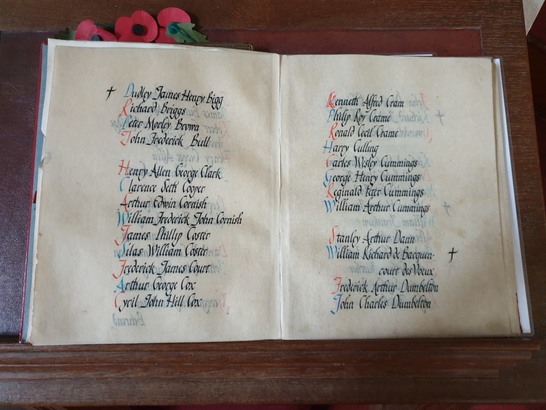 † Dudley James Henry Bigg
Richard Briggs
Peter Morley Brown
John Frederick Bull
Henry Allen George Clark
Clarence Seth Cooper
Arthur Edwin Cornish
William Frederick John Cornish
James Phillip Coster
Silas William Coster
Frederick James Court
Arthur George Cox
Cyril John Hill Cox
Kenneth Alfred Cram
Philip Roy Crame
Ronald Cecil Crame
Harry Culling
Charles Wesley Cummings
George Henry Cummings
Reginald Peter Cummings
William Arthur Cummings
Stanley Arthur Dann
William Richard de Bacquen- †
court des Voeux
Frederick Arthur Dumbelton
John Charles Dumbelton